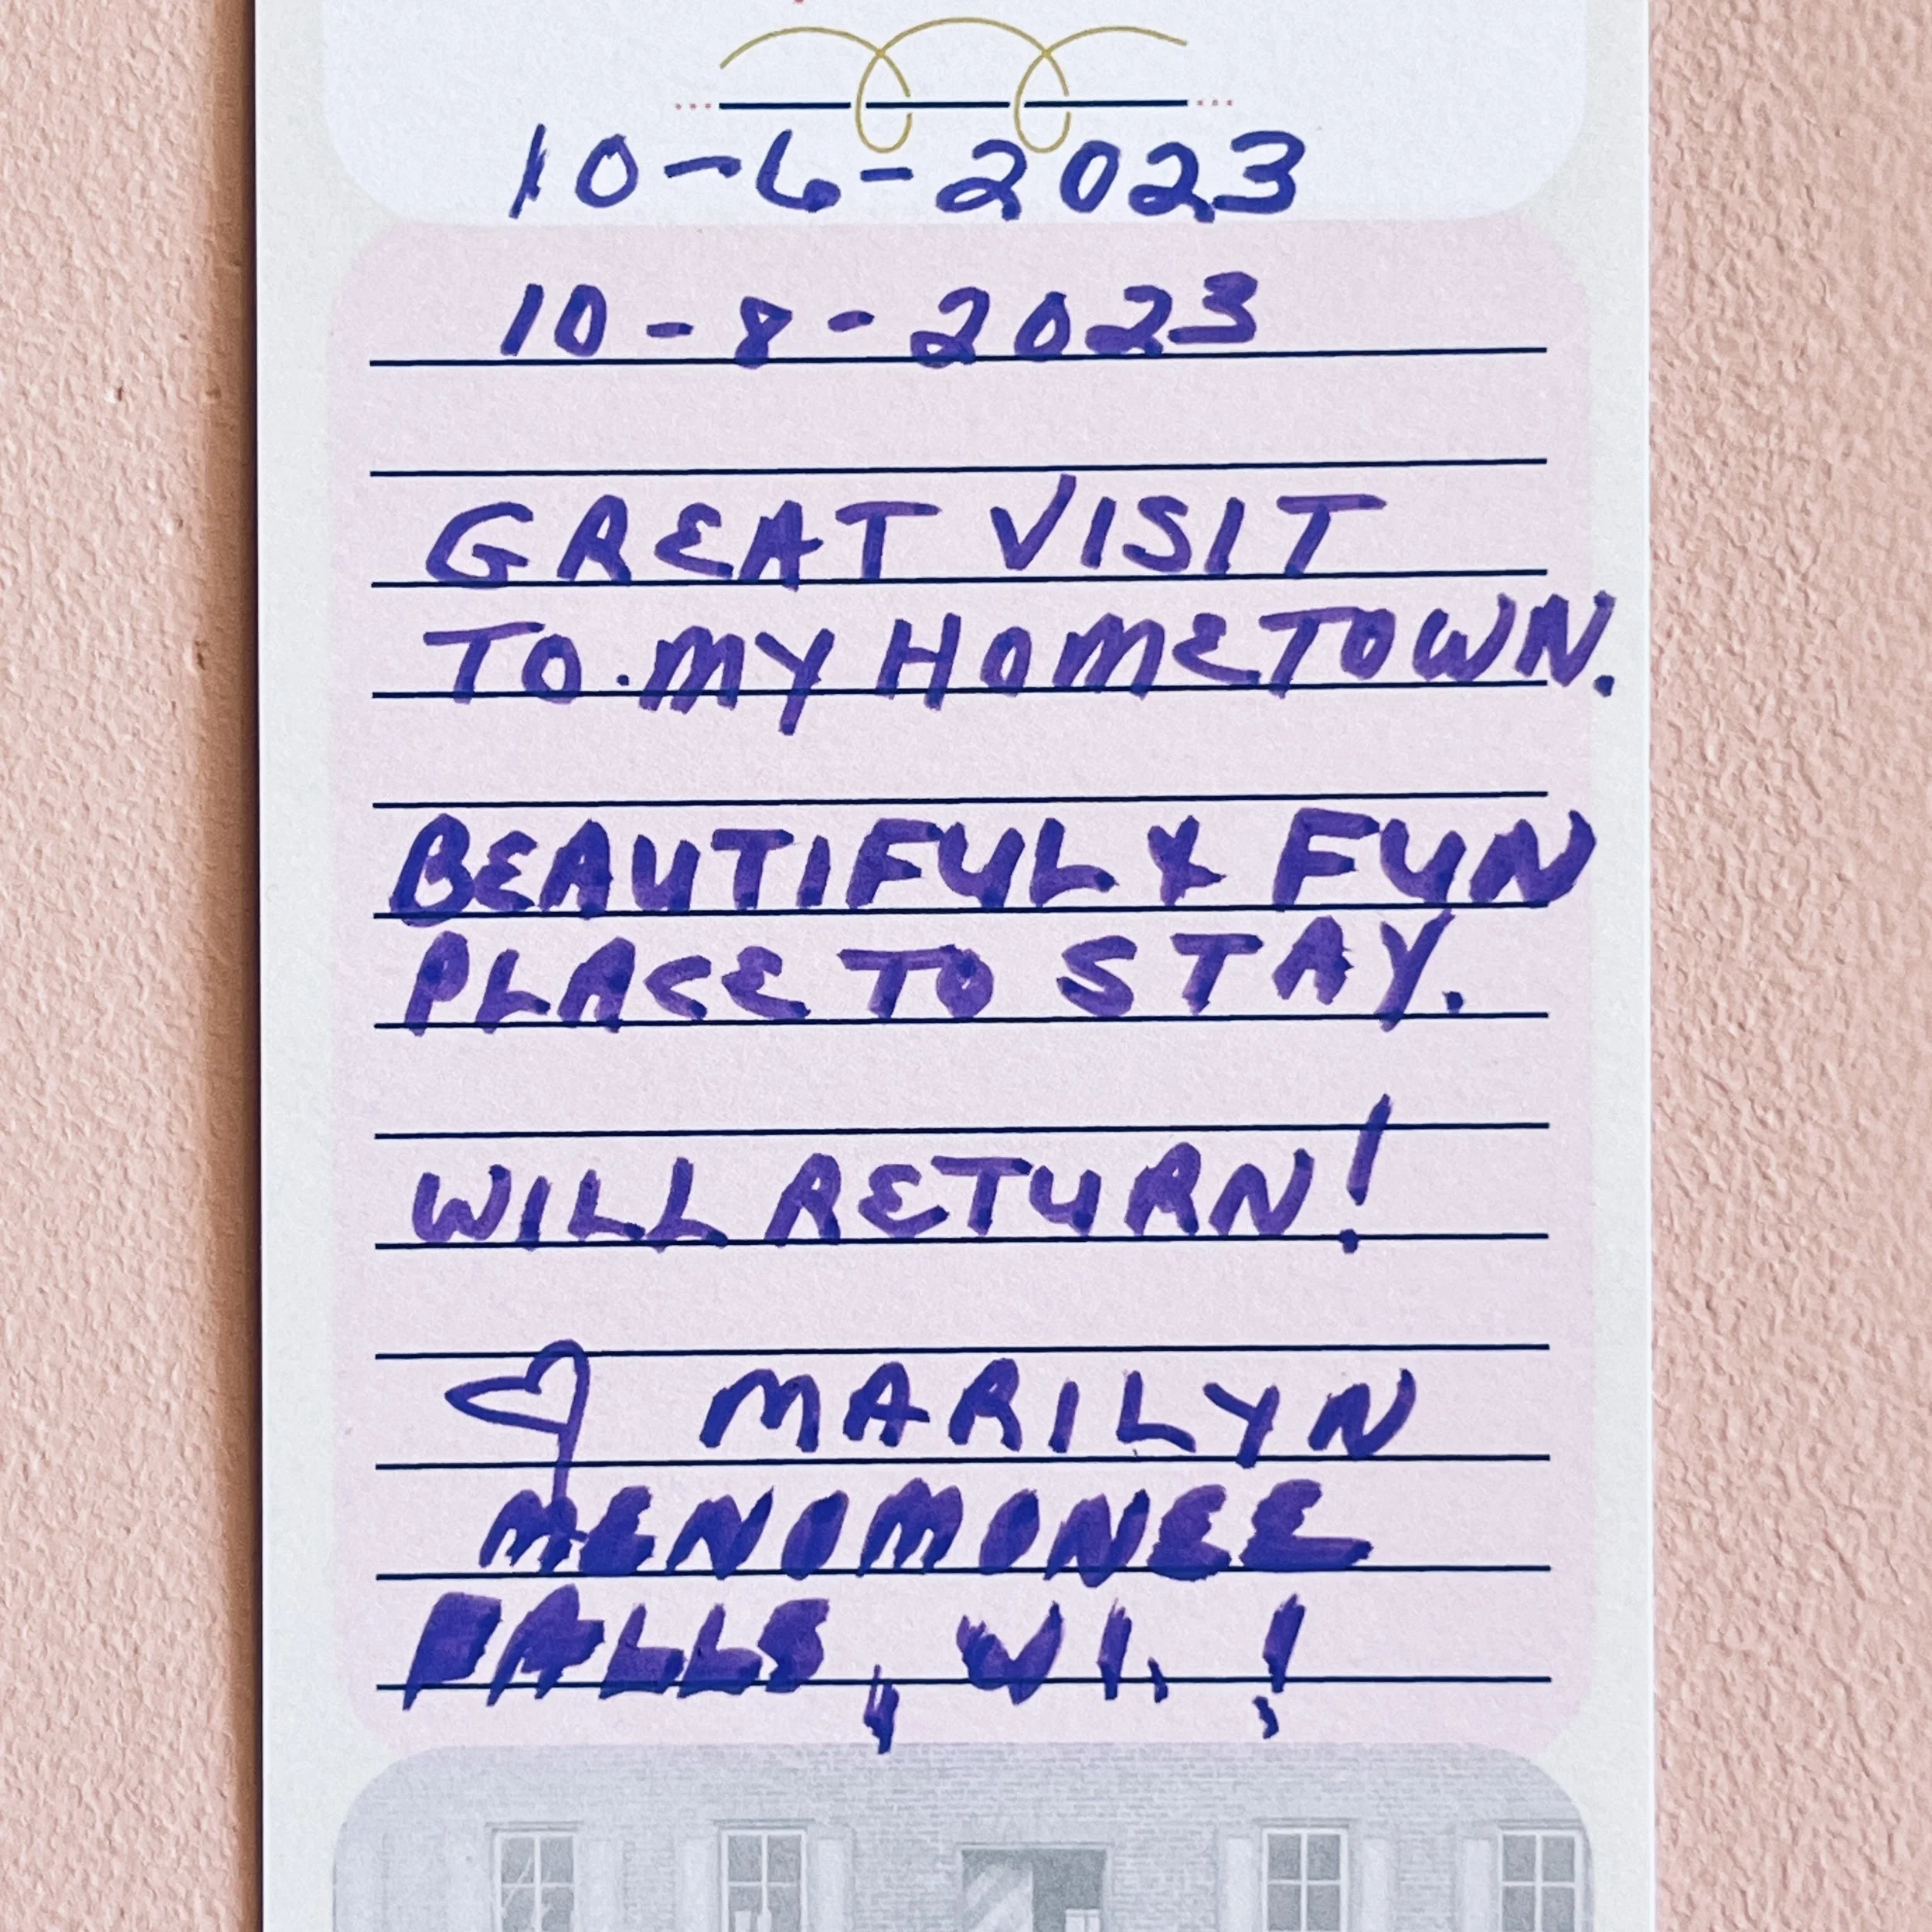 10-6-2023
10-8-2023
GREAT VISIT
TO.MY HOMETOWN.
BEAUTIFUL & FUN
PLACE TO STAY.
WILL RETURN!
♡ MARILYN
MENOMONEE
FALLS, WI. !